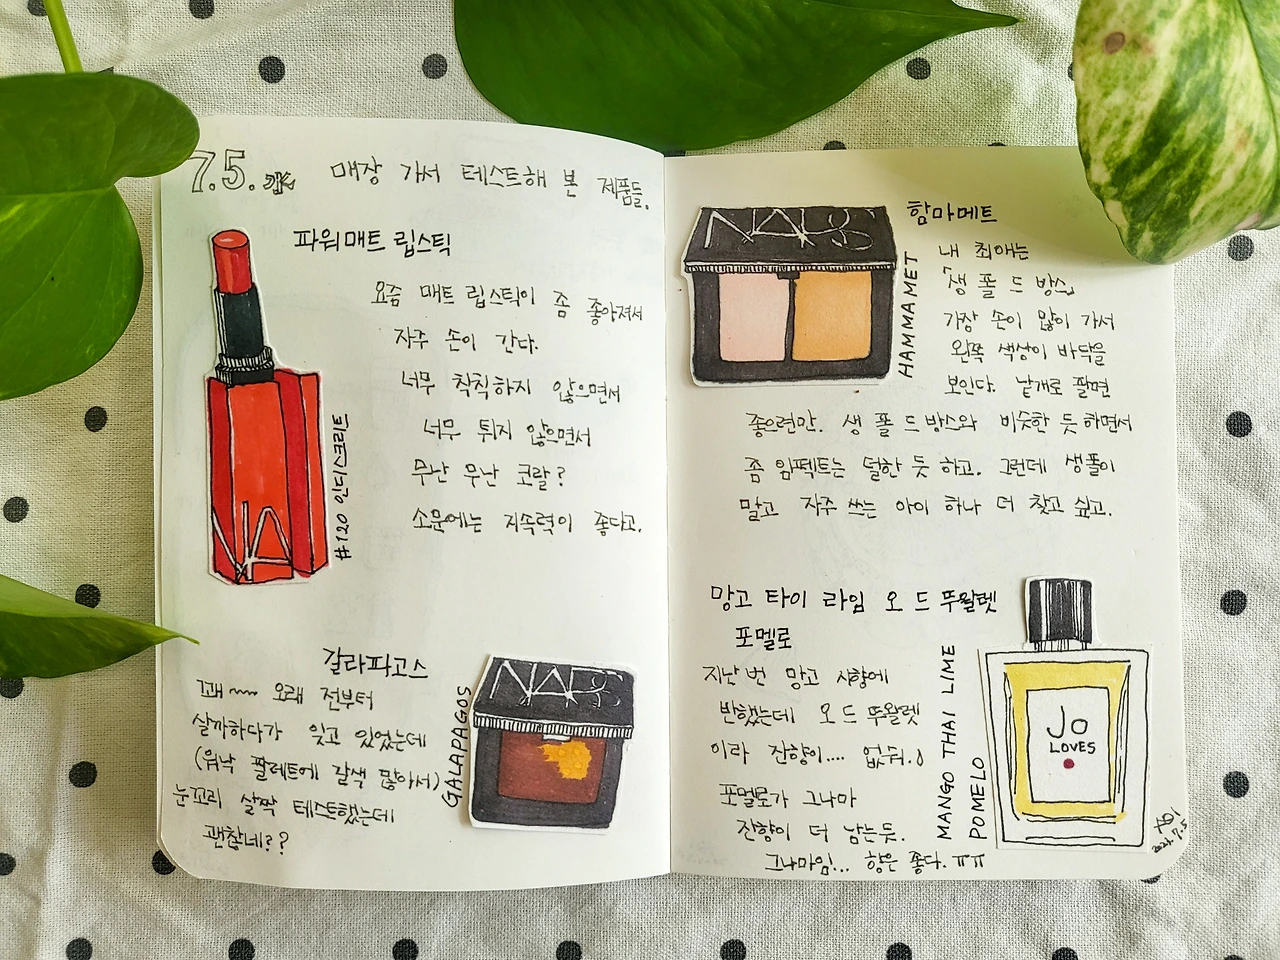 7.5. 水 매장 가서 테스트해 본 제품들.
파워매트 립스틱
요즘 매트 립스틱이 좀 좋아져서
자주 손이 간다.
너무 칙칙하지 않으면서
너무 튀지 않으면서
무난 무난 코랄?
소문에는 지속력이 좋다고.
#120 인디스트리트
갈라파고스
꽤~~~ 오래 전부터
살까하다가 잊고 있었는데
(워낙 팔레트에 갈색 많아서)
눈꼬리 살짝 테스트했는데
괜찮네??
GALAPAGOS
NARS
NARS
함마메트
HAMMAMET
내 최애는
생 폴 드 방스.
가장 손이 많이 가서
왼쪽 색상이 바닥을
보인다. 낱개로 팔면
좋으련만. 생 폴 드 방스와 비슷한 듯 하면서
좀 임팩트는 덜한 듯 하고. 그런데 생폴이
말고 자주 쓰는 아이 하나 더 찾고 싶고.
망고 타이 라임 오 드 뚜왈렛
포멜로
지난 번 망고 시향에
반했는데 오 드 뚜왈렛
이라 잔향이.... 없숴.
포멜로가 그나마
잔향이 더 남는듯.
그나마임... 향은 좋다. ㅠㅠ
MANGO THAI LIME
POMELO
Jo
LOVES
7.5